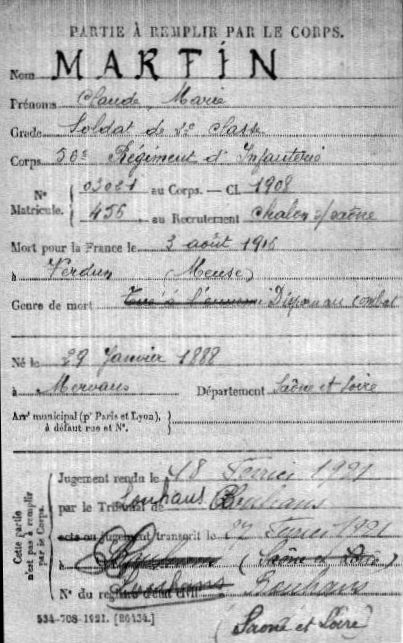 PARTIE À REMPLIR PAR LE CORPS.
Nom MARTIN
Prénoms Claude Marie
Grade Soldat de 2e Classe
Corps Régiment d'Infanterie
Nº Matricule. { au Corps. — Cl. 1908
456 au Recrutement Chalon s/saône
Mort pour la France le 3 août 1916
à Verdun (Meuse)
Genre de mort Tué à l'ennemi Disparu au combat
Né le 29 Janvier 1888
à Mervans Département Saône et Loire
Arrt municipal (pr Paris et Lyon), }
à défaut rue et Nº.
Cette partie n'est pas à remplir par le Corps.
Jugement rendu le 18 Février 1921
par le Tribunal de Louhans
acte ou jugement transcrit le Février 1921
(Saône et Loire)
Nº du registre d'état civil
(Saone et Loire)
534-708-1921. [26434.]